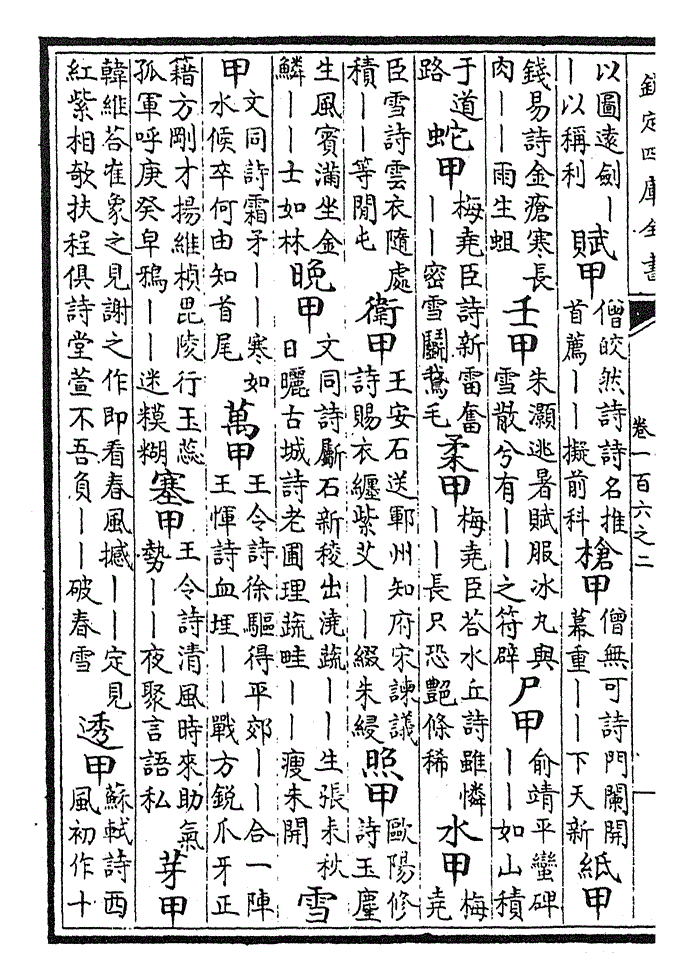 欽定四庫全書 卷一百六之二 一
以圖遠劍丨丨以稱利 賦甲 僧皎然詩詩名推首薦丨丨擬前科 槍甲 僧無可詩門闌開幕重丨丨下天新 紙甲
錢易詩金瘡寒長肉丨丨雨生蛆 壬甲 朱灝逃暑賦服冰丸與雪散兮有丨丨之符辟 尸甲 俞靖平蠻碑丨丨如山積
于道路 蛇甲 梅堯臣詩新雷奮丨丨密雪鬭鵞毛 柔甲 梅堯臣荅水丘詩雖憐丨丨長只恐艷條稀 水甲 梅堯
臣雪詩雲衣隨處積丨丨等閒屯 衛甲 王安石送鄆州知府宋諫議詩賜衣纏紫艾丨丨綴朱綬 照甲 歐陽修詩玉麈
生風賓滿坐金鱗丨丨士如林 晚甲 文同詩斸石新稜出澆蔬丨丨生張耒秋日曬古城詩老圃理蔬畦丨丨瘦未開 雪
甲 文同詩霜矛丨丨寒如水候卒何由知首尾 萬甲 王令詩徐驅得平郊丨丨合一陣王惲詩血埋丨丨戰方鋭爪牙正
藉方剛才揚維楨毘陵行玉蕊孤軍呼庚癸皁鴉丨丨迷糢糊 塞甲 王令詩清風時來助氣勢丨丨夜聚言語私 芽甲
韓維荅崔象之見謝之作即看春風撼丨丨定見紅紫相欹扶程俱詩堂萱不吾負丨丨破春雪 透甲 蘇軾詩西風初作十